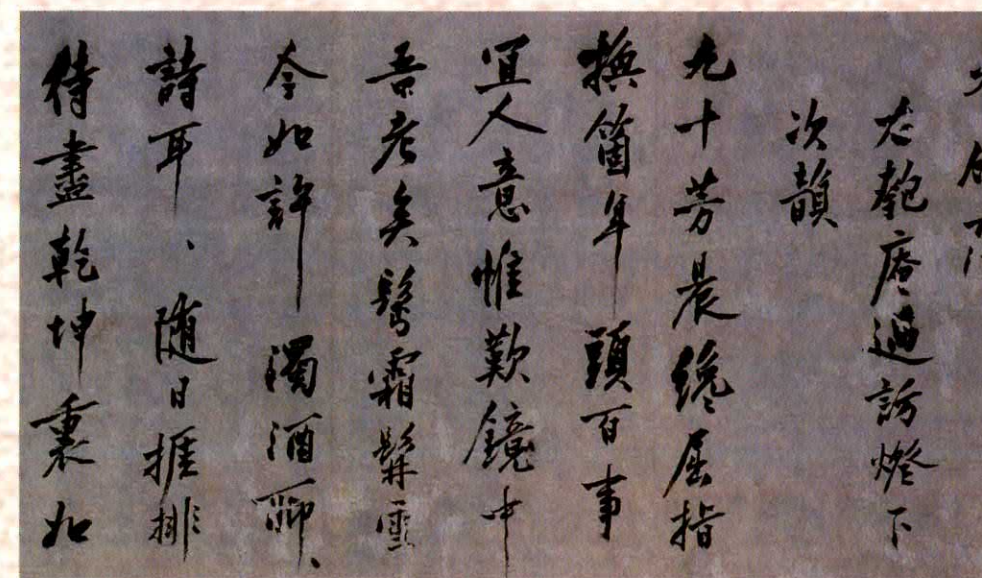 匏庵過訪燈下
次韻
九十芳晨纔屈指
撫箇年頭百事
宜人意惟歎鏡中
吾老矣鬢霜髯雪
今如許濁酒聊、
詩耳、隨日捱排
待盡乾坤裏如